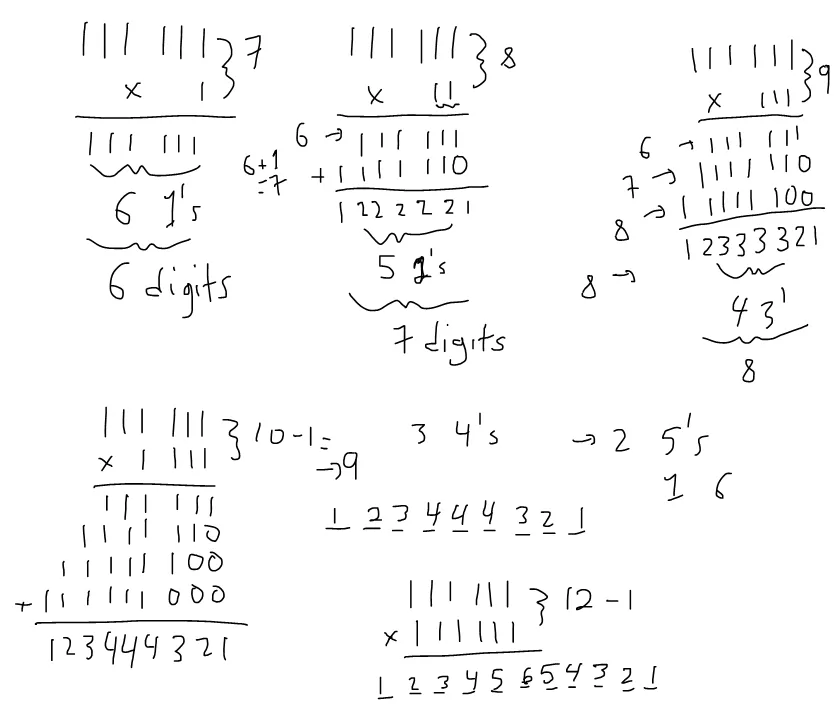 111 111 } 7
x 1
111 111
6 1's
6 digits
111 111 } 8
x 11
6 → 111 111
6+1 =7 + 1111 110
1222221
5 2's
7 digits
111 111 } 9
x 111
6 → 111 111
7 → 1111 110
8 → 11111 100
12333321
8 →
4 3'
8
111 111 } 10-1=
x 1 111 → 9
111 111
1111 110
11111 100
+ 111111 000
123444321
3 4's → 2 5's
1 6
1 2 3 4 4 4 3 2 1
111 111 } 12-1
x 111 111
1 2 3 4 5 6 5 4 3 2 1